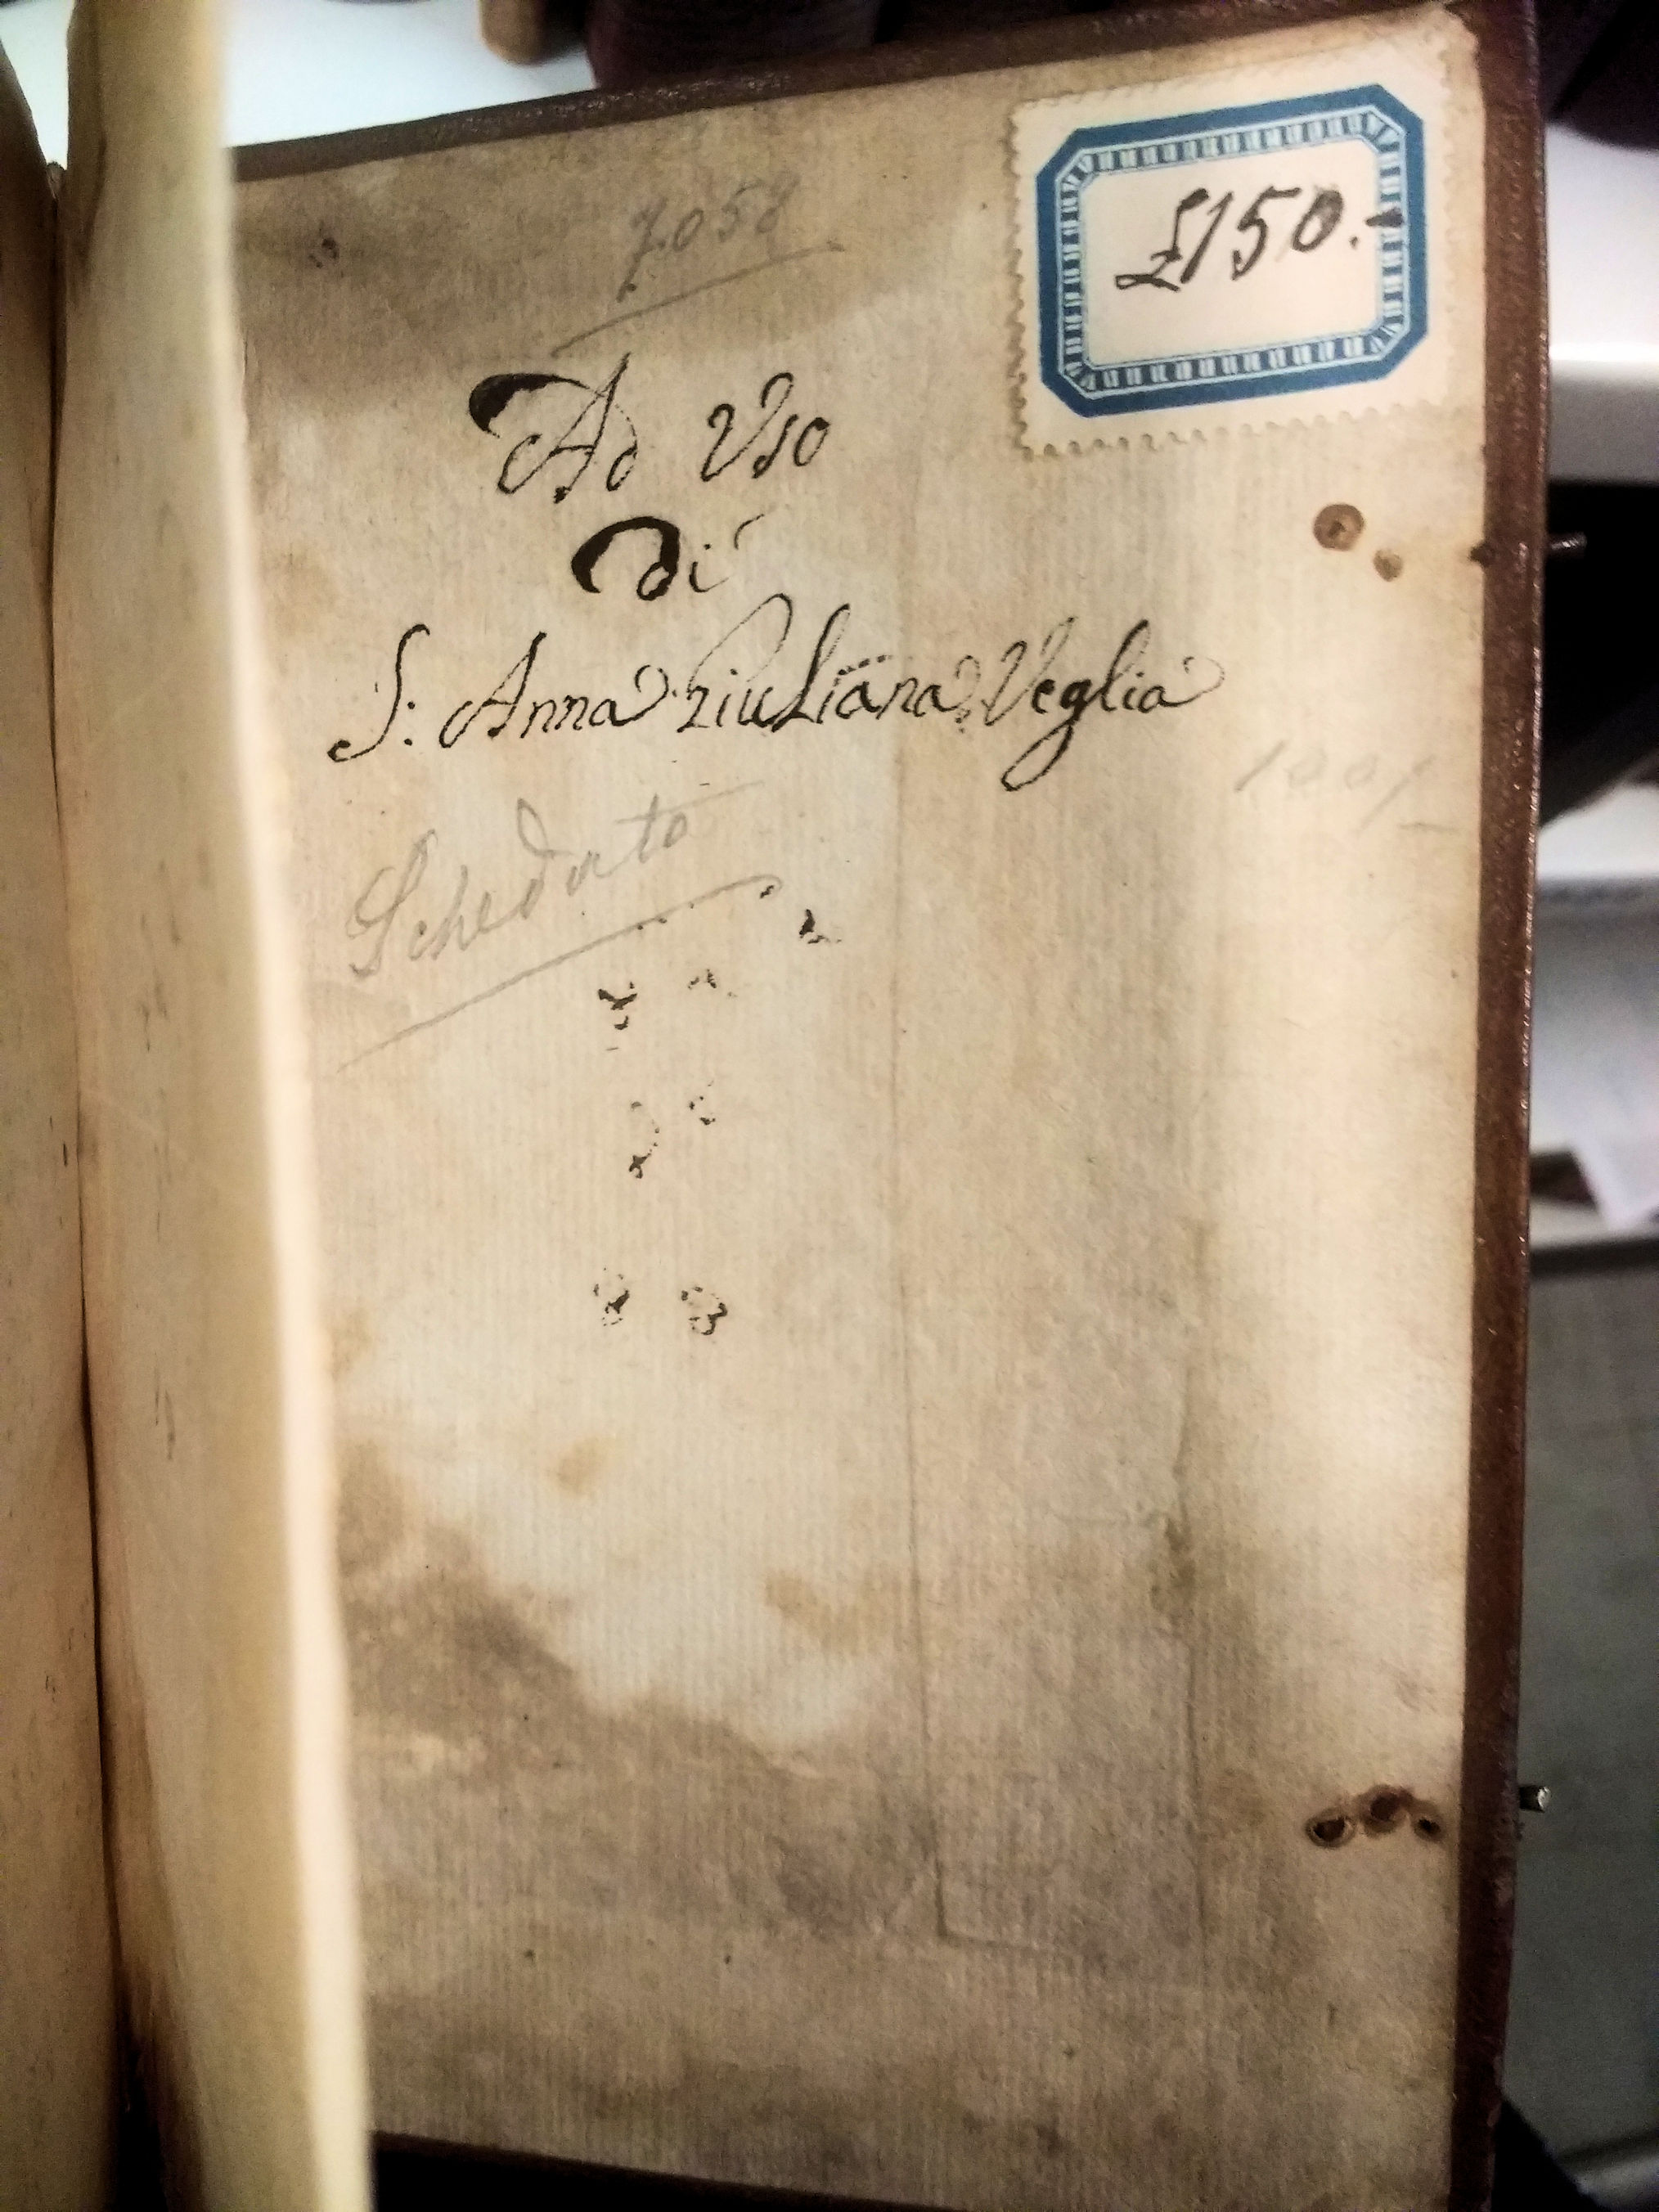 £150.-
7058
Ad Uso
Di
S: Anna Giuliana Veglia
Schedato